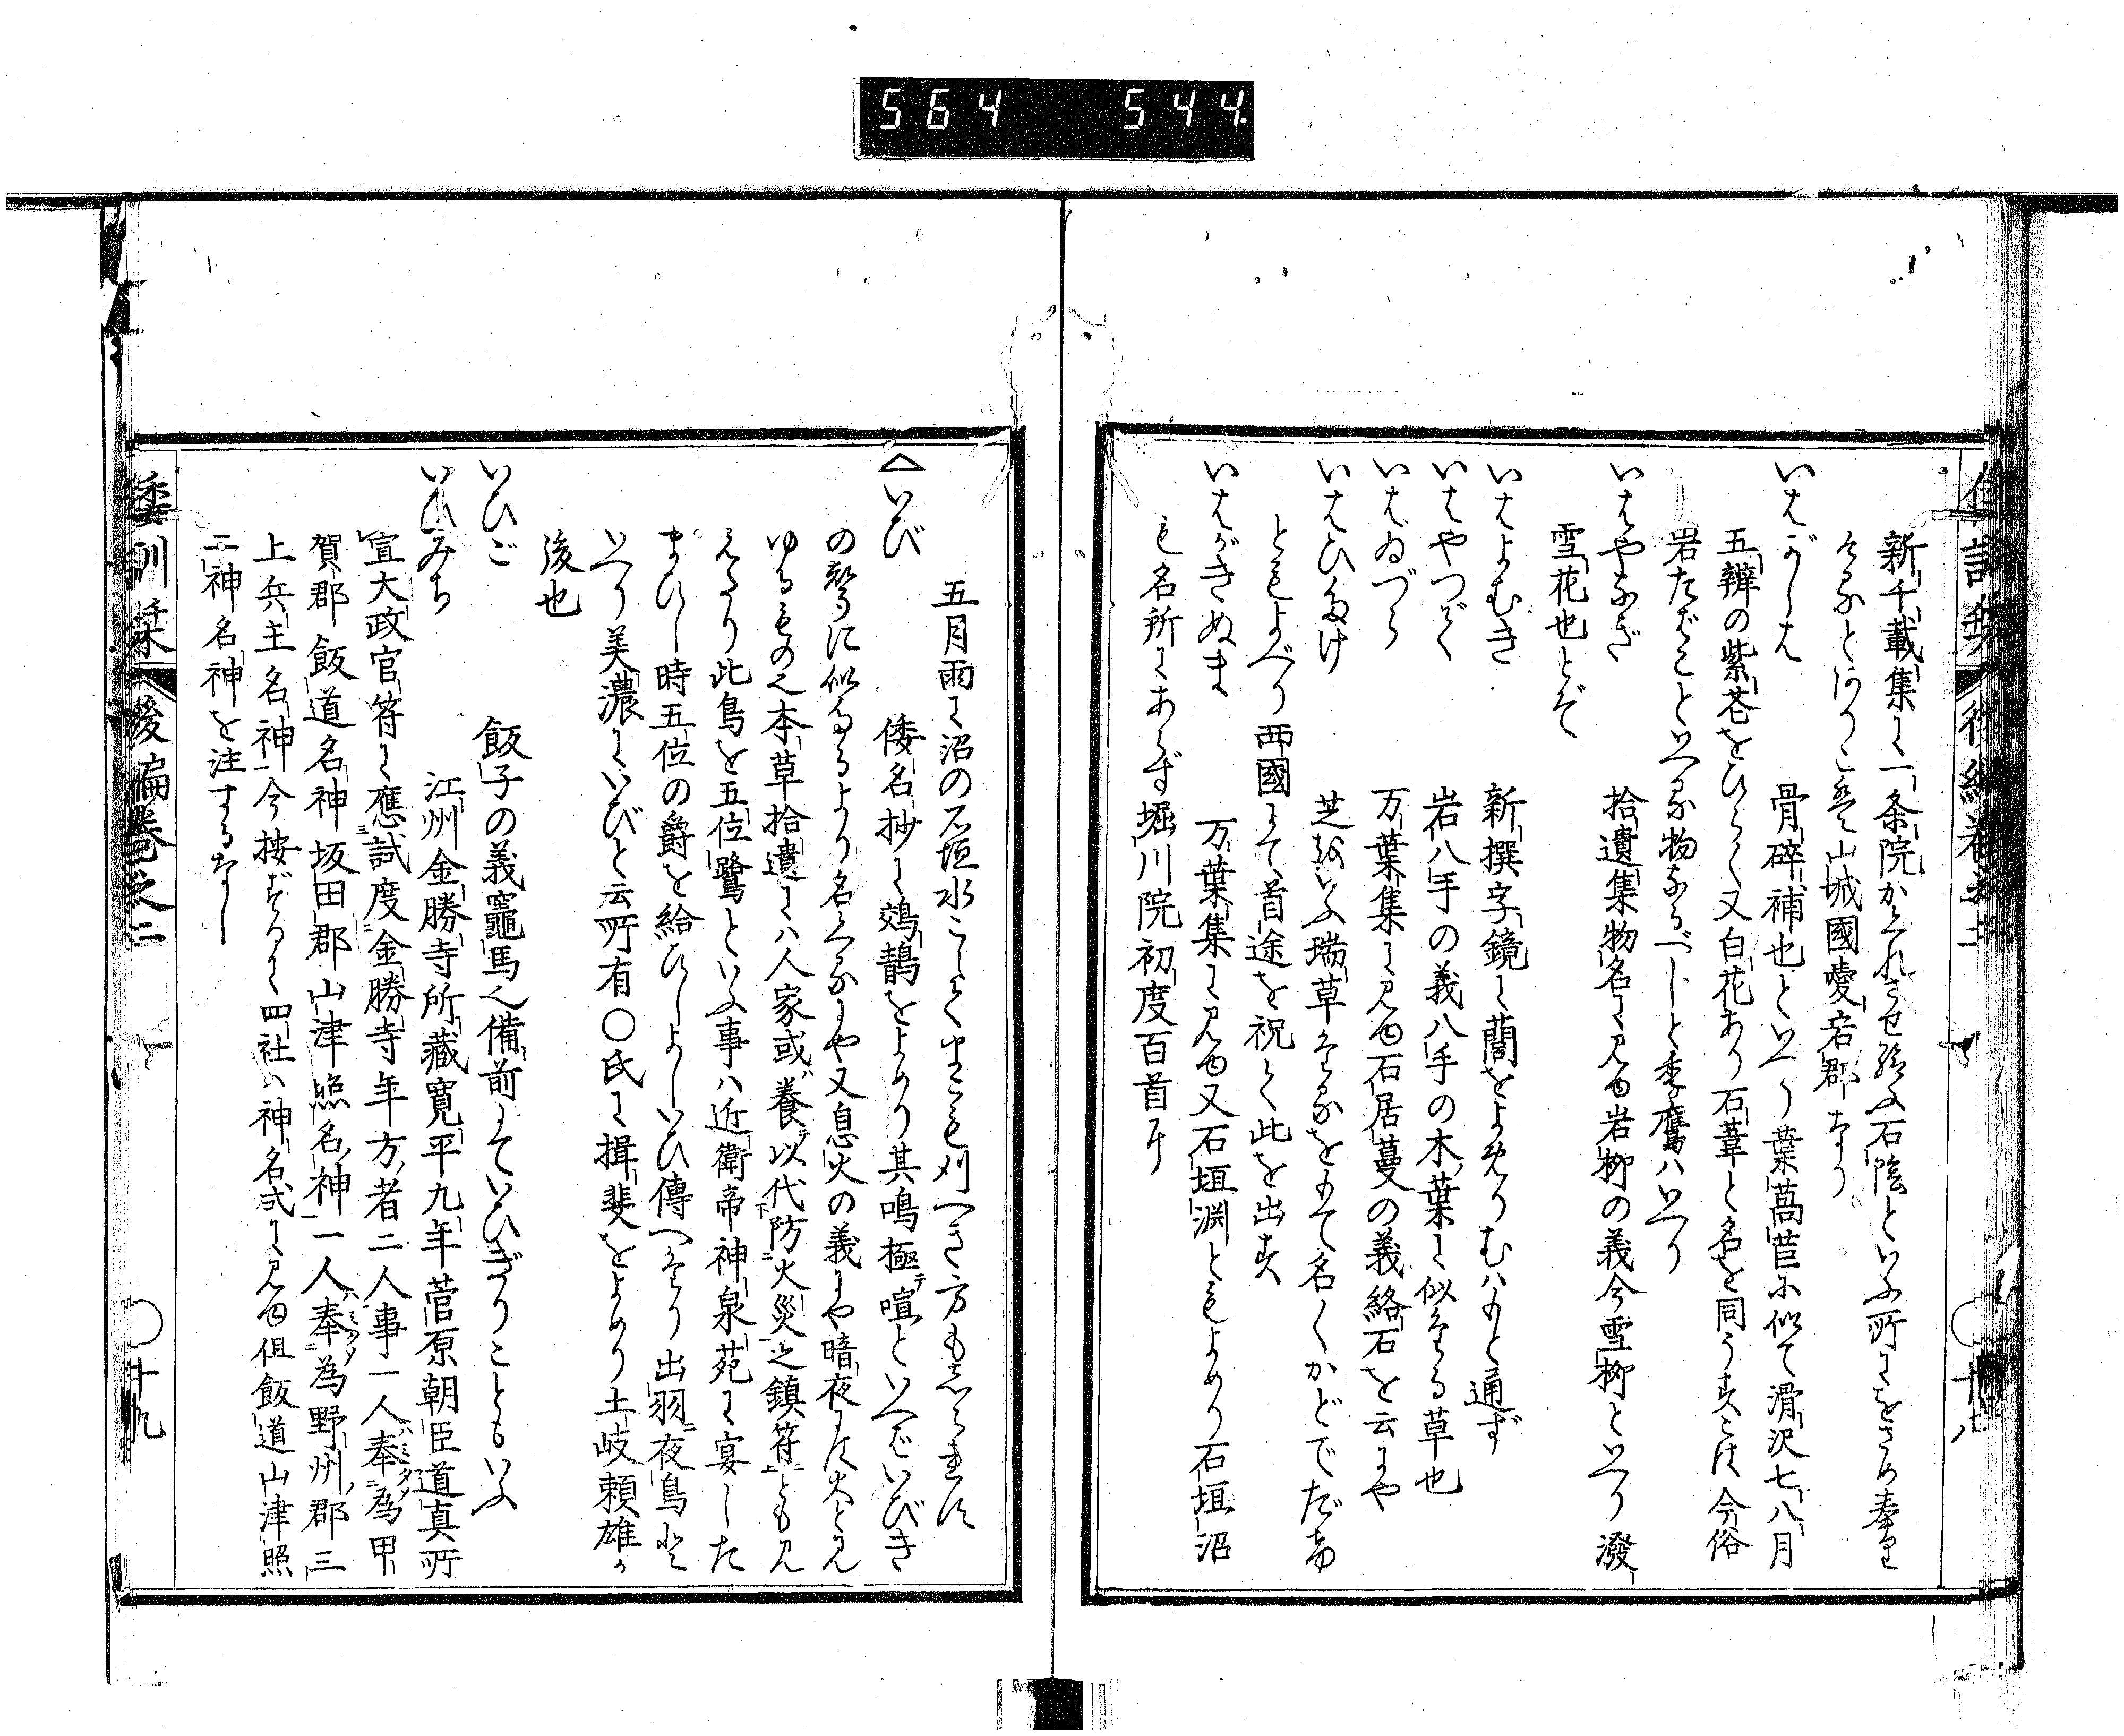 564 544
新千載集に二条院かくれさせ給ふ石陰といふ所にをさめ奉る
山城國愛宕郡なり
いはがしは 骨碎補也といへり葉萵苣に似て滑沢七八月
五辨の紫花をひらく又白花あり石葦と名を同うす 今俗
岩たばこといへる物なるべしと季鷹はいへり
いはやなぎ 拾遺集物名に見ゆ岩柳の義今雪柳といへり潑
雪花也とぞ
いはよむき 新撰字鏡に藺をよめりむはもと通ず
いはやつで 岩八手の義八手の木葉に似たる草也
いはゐづら 万葉集に見ゆ石居蔓の義絡石を云にや
いはひたけ 芝をいふ瑞草なるをもて名くかどでだけ
ともよべり西國にて首途を祝て此を出す
いはがきぬま 万葉集に見ゆ又石垣渊ともよめり石垣沼
も名所にあらず堀川院初度百首に
倭訓栞 後編巻之二 十八
五月雨に沼の石垣水こえて 刈へき方もしられず
△いび 倭名抄に鵁鶄をよめり其鳴極テ喧といへばいびき
の声に似たるより名くるにや又息火の義にや暗夜には火と見
ゆるもの也本草拾遺には人家或養テ以代防火災之鎮符とも見
えたり此鳥を五位鷺といふ事は近衛帝神泉苑に宴した
まひし時五位の爵を給ひしよしいひ傳へたり出羽ニ夜鳥と
いへり美濃にいびと云所有〇氏に揖斐をよめり土岐頼雄か
後也
いひご 飯子の義竈馬也備前にていひぎりこともいふ
いひみち 江州金勝寺所藏寛平九年菅原朝臣道真所
宣大政官符に應試度金勝寺年方者二人事一人奉為甲
賀郡飯道名神坂田郡山津照名神一人奉為野州郡三
上兵主名神今按ずるに四社は神名式に見ゆ但飯道山津照
二神名神を注するなし
倭訓栞 後編巻之二 十九